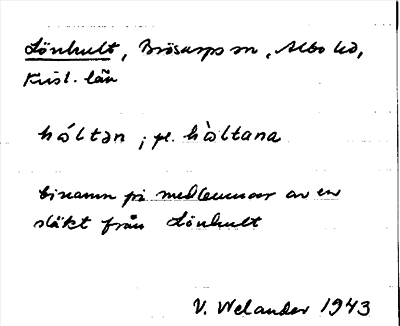 Lönhult, Brösarps sn, Albo hd,
Krist. län
hóltən ; pl. hòltana
binamn på medlemmar av en
släkt från Lönhult
V. Welander 1943